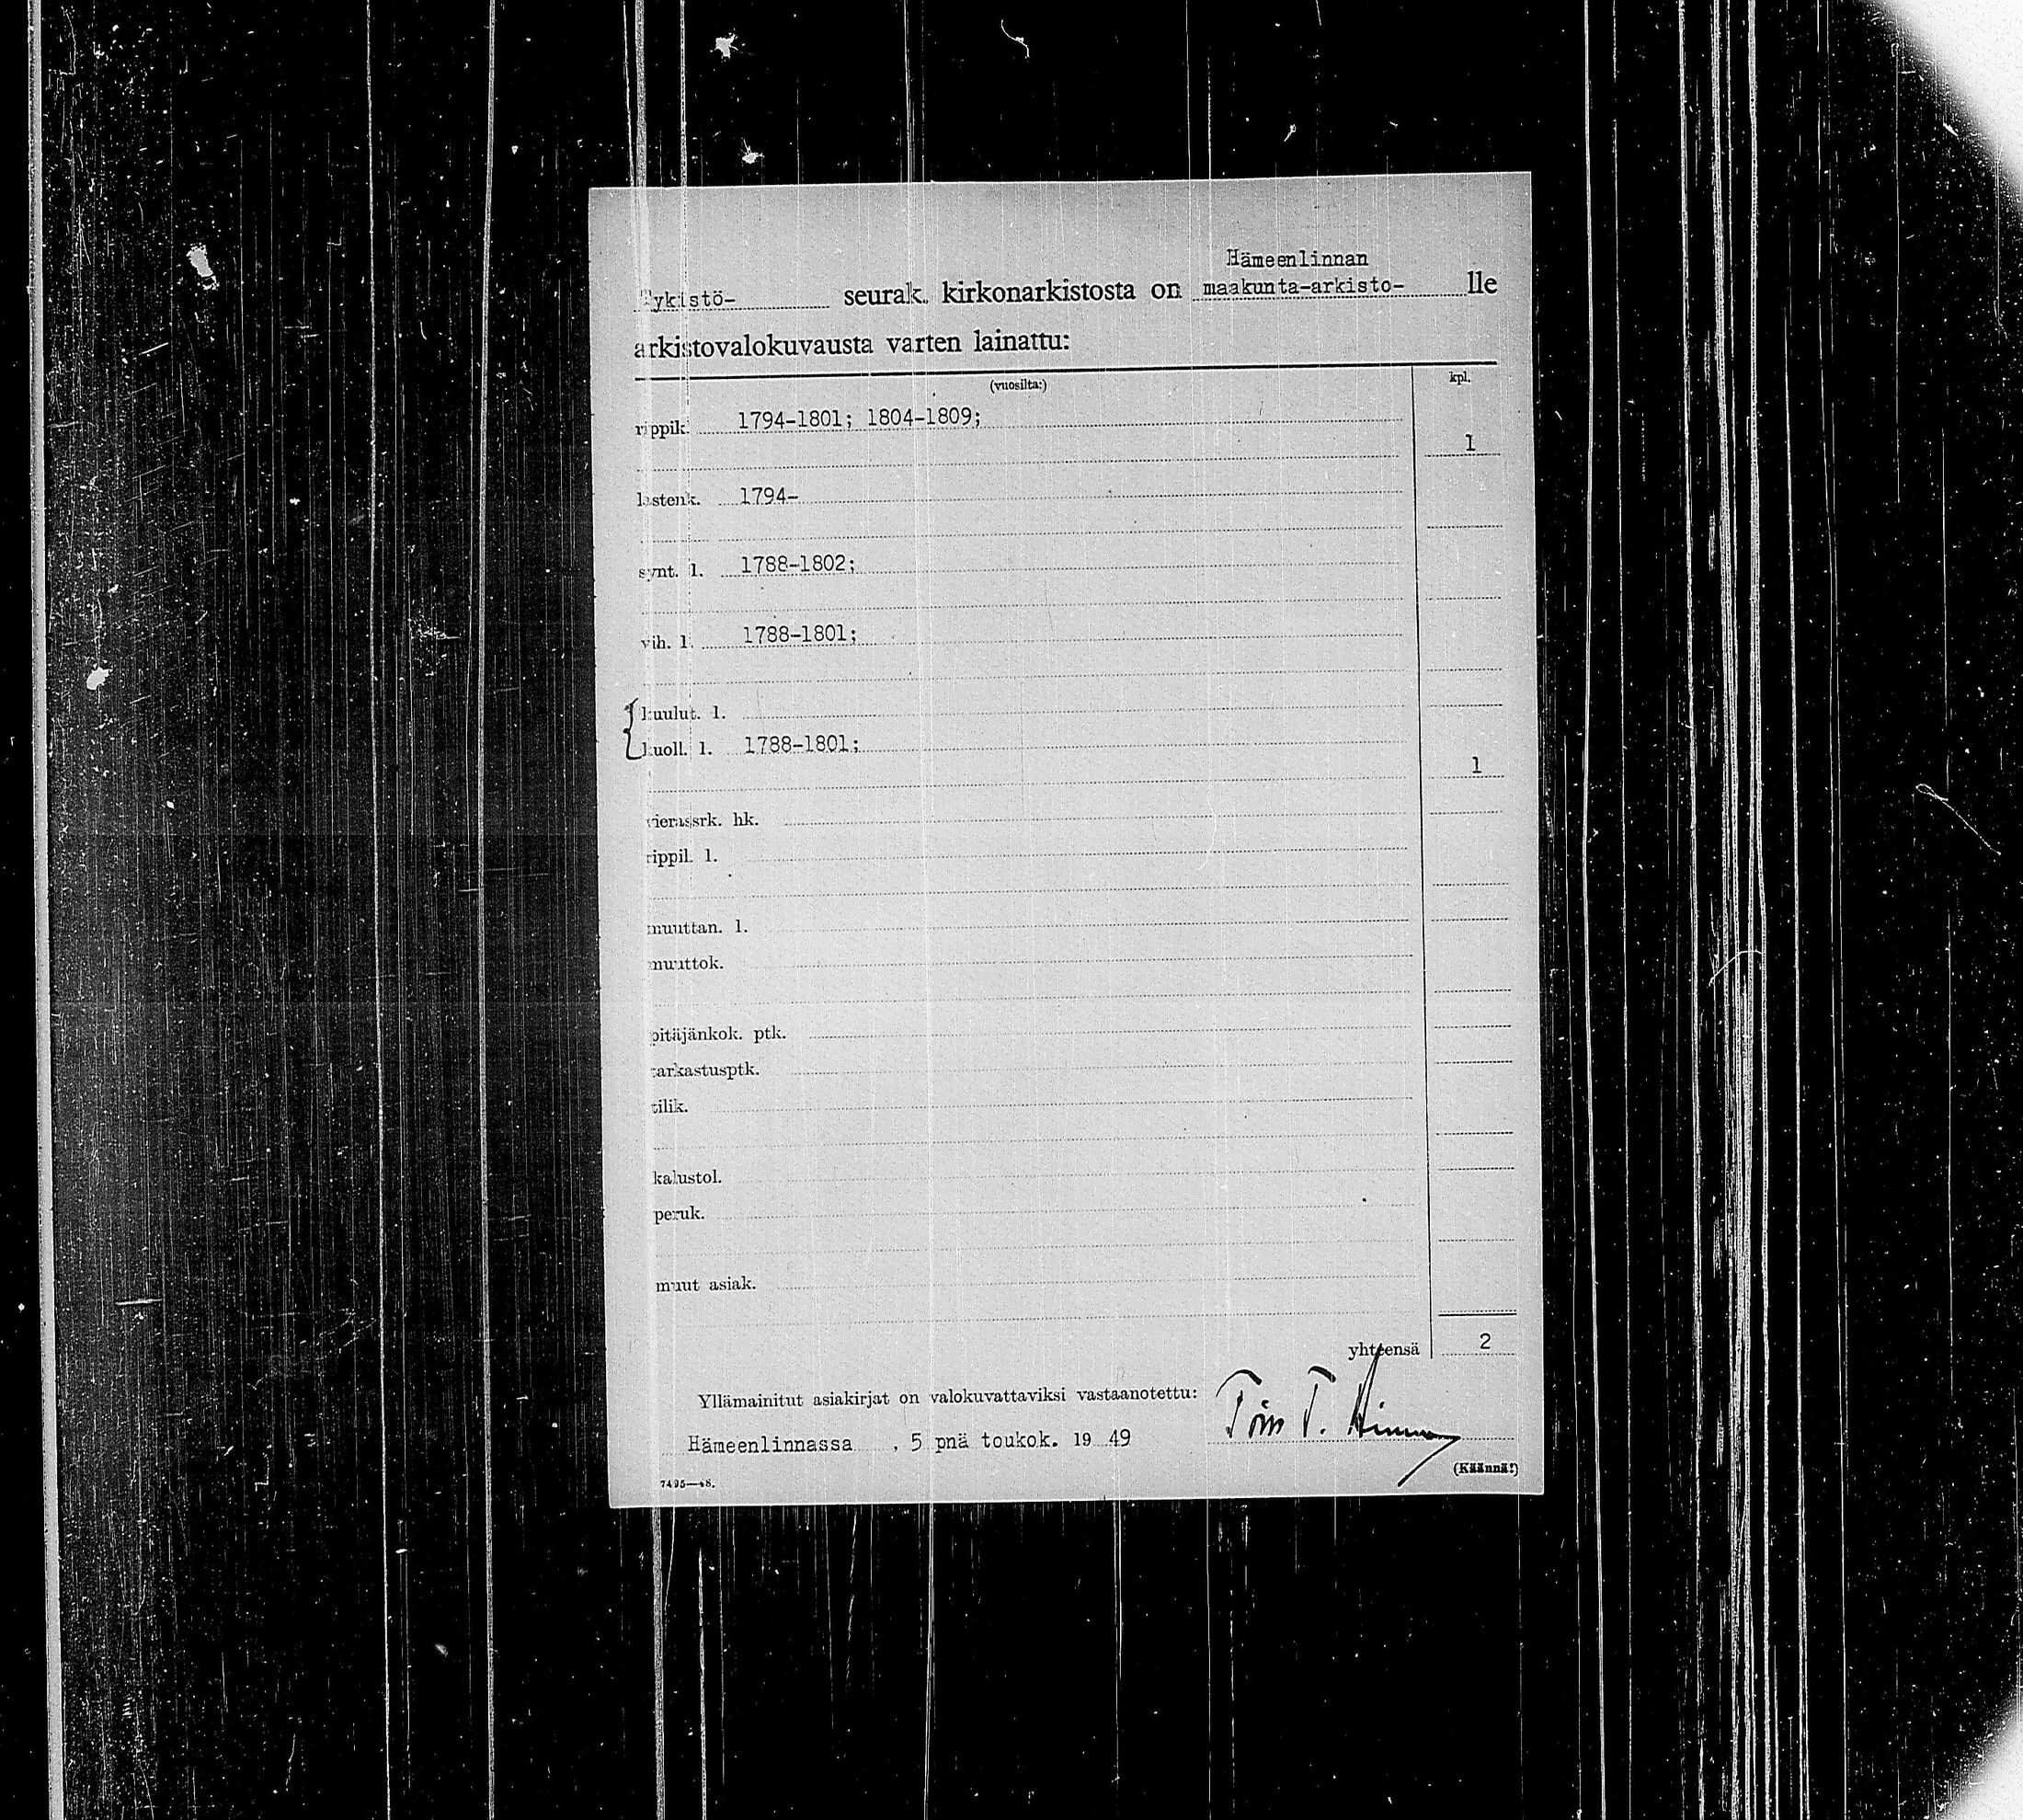 Hämeenlinnan
Tykistö- seurak. kirkonarkistosta on maakunta-arkisto- lle
arkistovalokuvausta varten lainattu:
(vuosilta:) kpl.
rippik. 1794-1801; 1804-1809;
1
lastenk. 1794-
synt. l. 1788-1802;
vih. l. 1788-1801;
kuulut. l.
kuoll. l. 1788-1801;
1
vierassrk. hk.
rippil. l.
muuttan. l.
muuttok.
pitäjänkok. ptk.
tarkastusptk.
tilik.
kalustol.
peruk.
muut asiak.
yhteensä 2
Yllämainitut asiakirjat on valokuvattaviksi vastaanotettu:
Hämeenlinnassa , 5 pnä toukok. 19 49
(Käännä!)
7495—48.